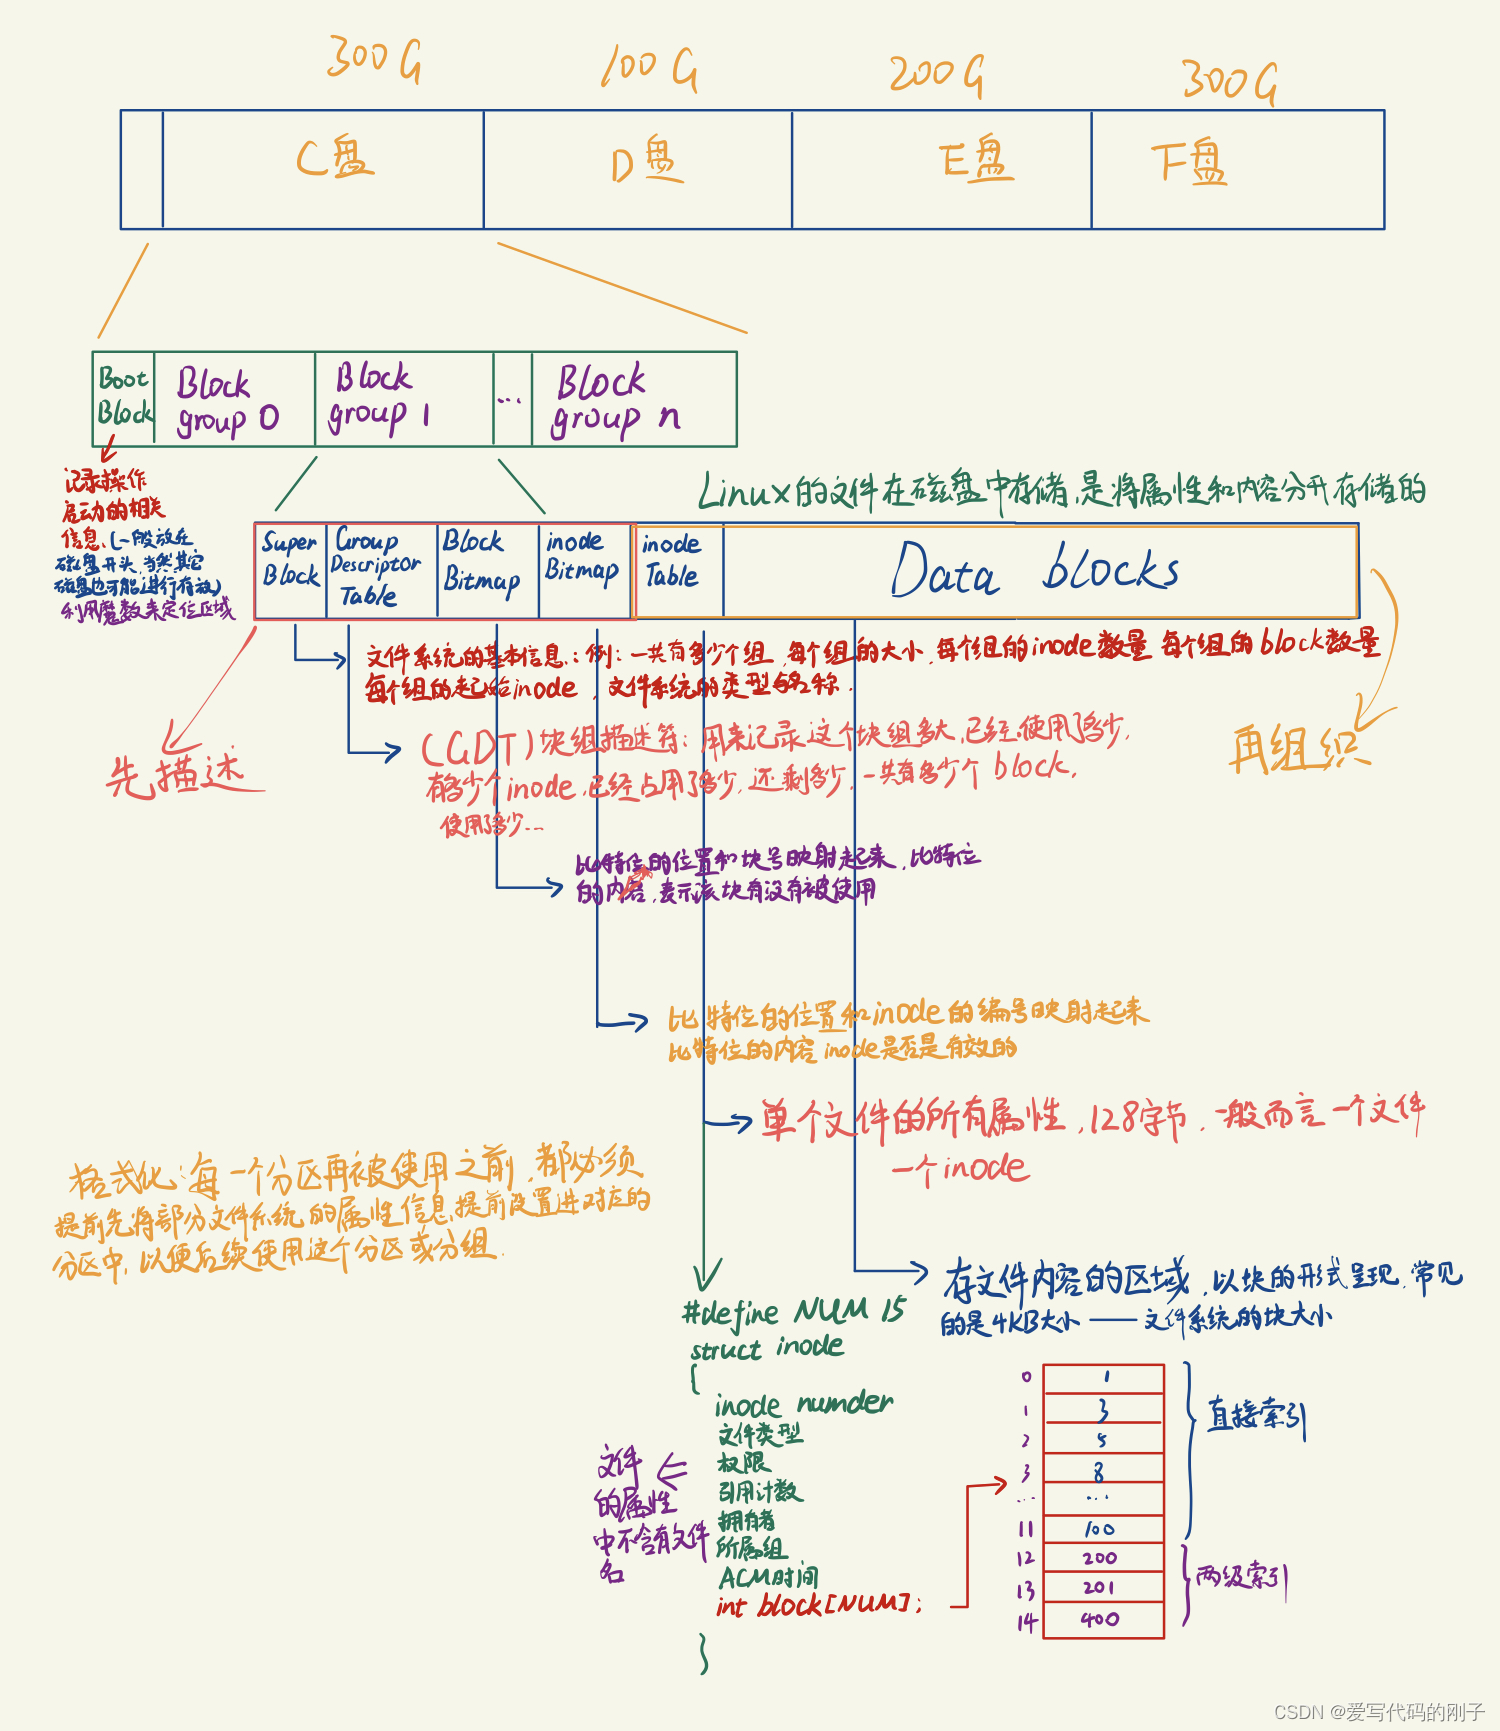 300G 100G 200G 300G
C盘 D盘 E盘 F盘
Boot
Block
Block
group 0
Block
group 1
...
Block
group n
记录操作
启动的相关
信息、(一般放在
磁盘开头,当然其它
磁盘也可能进行存放)
利用魔数来定位区域
Linux的文件在磁盘中存储,是将属性和内容分开存储的
Super
Block
Group
Descriptor
Table
Block
Bitmap
inode
Bitmap
inode
Table
Data blocks
文件系统的基本信息:例:一共有多少个组,每个组的大小,每个组的inode数量 每个组的block数量
每个组的起始inode,文件系统的类型与名称.
先描述
再组织
(GDT)块组描述符:用来记录这个块组多大,已经使用了多少,
有多少个inode,已经占用了多少,还剩多少,一共有多少个block,
使用了多少...
比特位的位置和块号映射起来,比特位
的内容,表示该块有没有被使用
比特位的位置和inode的编号映射起来
比特位的内容 inode是否是有效的
单个文件的所有属性,128字节,一般而言一个文件
一个inode
格式化:每一个分区再被使用之前,都必须
提前先将部分文件系统的属性信息提前设置进对应的
分区中,以便后续使用这个分区或分组.
存文件内容的区域,以块的形式呈现,常见
的是4KB大小——文件系统的块大小
#define NUM 15
struct inode
{
inode numder
文件类型
权限
引用计数
拥有者
所属组
ACM时间
int block[NUM];
}
文件
的属性
中不含有文件
名
0 1
1 3
2 5
3 8
... ...
11 100
12 200
13 201
14 400
直接索引
两级索引
CSDN @爱写代码的刚子